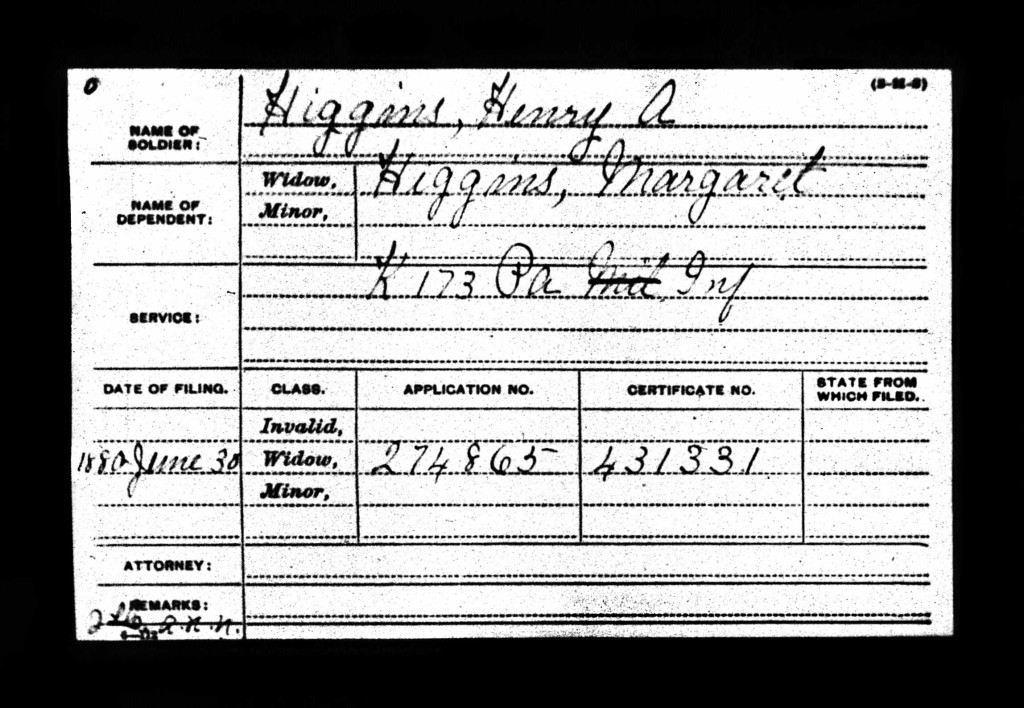 0
(3-M-6)
NAME OF SOLDIER: Higgins, Henry A
NAME OF DEPENDENT: Widow, Higgins, Margaret
Minor,
SERVICE: K 173 Pa Mil Inf
DATE OF FILING. CLASS. APPLICATION NO. CERTIFICATE NO. STATE FROM WHICH FILED.
Invalid,
1880 June 30 Widow, 274865 431331
Minor,
ATTORNEY:
REMARKS: